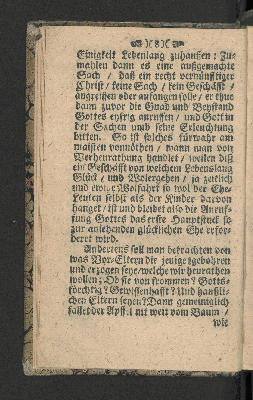 ( 8 )
Einigkeit Lebenlang zuhauffen: Zu-
mahlen dann es eine außgemachte
Sach / daß ein recht vernünfftiger
Christ / keine Sach / kein Geschäfft /
angreiffen oder anfangen solle / er thue
dann zuvor die Gnad und Beystand
Gottes eyfrig anruffen / und Gott in
der Sachen umb seine Erleuchtung
bitten. So ist solches fürwahr am
maisten vonnöthen / wann man von
Verheurathung handlet / weilen diß
ein Geschäfft von welchem Lebenslang
Glück / und Wolergehen / ja zeitlich
und ewige Wolfahrt so wol der Ehe-
Leuten selbst als der Kinder darvon
hanget / ist und bleibet also die Anruf-
fung Gottes das erste Hauptstuck so
zur anstehenden glücklichen Ehe erfor-
deret wird.
Andertens soll man betrachten von
was Vor-Eltern die jenige gebohren
und erzogen seye / welche wir heurathen
wollen; Ob sie von frommen? Gotts-
förchtig? Gewissenhafft? Und haußli-
chen Eltern seyen? Dann gemeiniglich
fallet der Apffel nit weit vom Baum /
wie